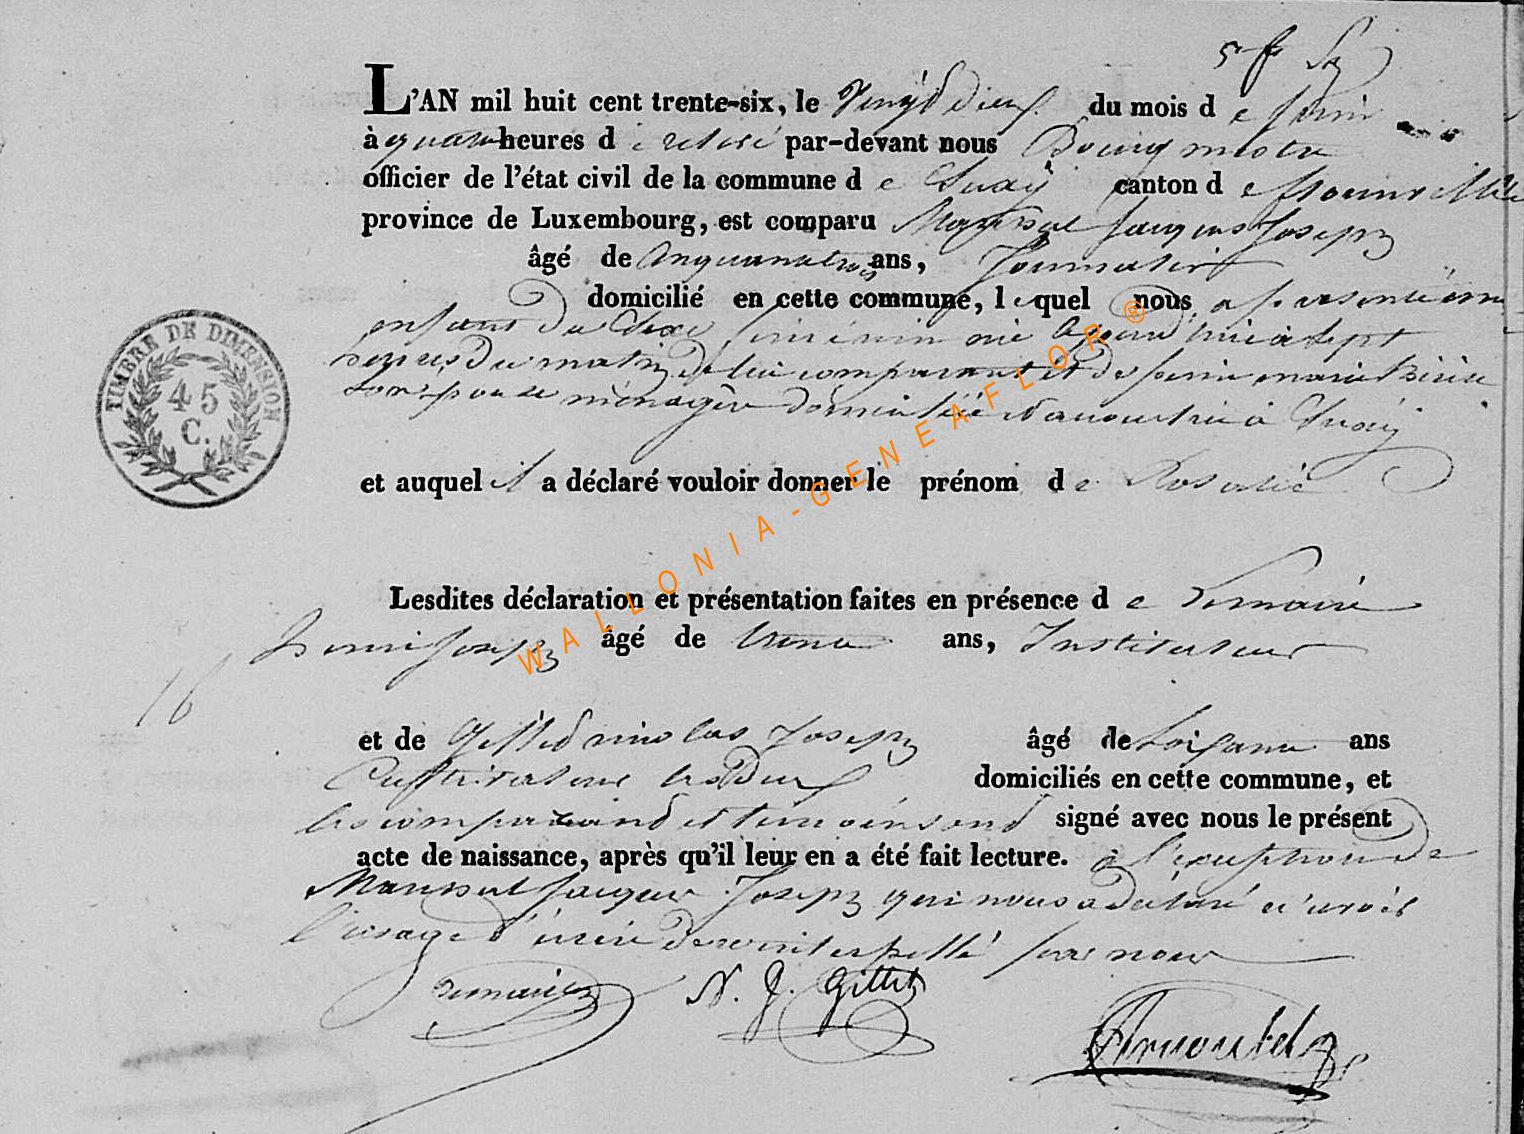 L'AN mil huit cent trente-six, le Vingt deux du mois d e Juin
à quatre heures d e relevé par-devant nous Bourgmestre
officier de l'état civil de la commune d e Suxÿ canton d e florenville
province de Luxembourg, est comparu Jacques Joseph
âgé de cinquante trois ans, Journalier
domicilié en cette commune, l e quel nous a presenté un
enfant du Sexe feminin né à sept
heures du matin de lui comparant et de marie
son epouse ménagère domiciliée à Suxÿ
et auquel il a déclaré vouloir donner le prénom d e Rosalie
Lesdites déclaration et présentation faites en présence d e Lemaire
henri Joseph âgé de trente ans, Instituteur
16
et de Gillet nicolas Joseph âgé de Soixante ans
Cultivateur les Deux domiciliés en cette commune, et
les comparant et temoins ont signé avec nous le présent
acte de naissance, après qu'il leur en a été fait lecture. à l'exception de
Jacques Joseph qui nous a declaré n'avoir
l'usage d'écrire de ce interpellé par nous
N. J. Gillet
TIMBRE DE DIMENSION
45
C.
WALLONIA-GENEAFLOR®